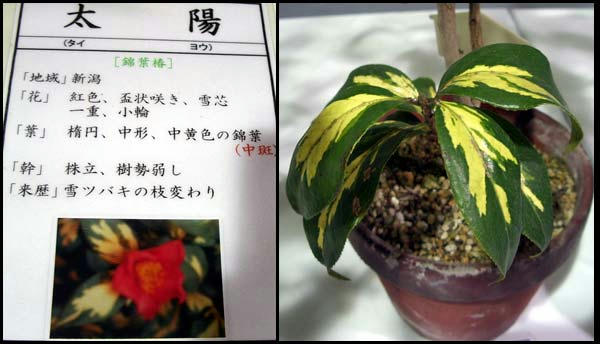 太 陽
(タイ ヨウ)
[錦葉椿]
「地域」新潟
「花」 紅色、盃状咲き、雪芯
一重、小輪
「葉」 楕円、中形、中黄色の錦葉
(中斑)
「幹」 株立、樹勢弱し
「来歴」雪ツバキの枝変わり